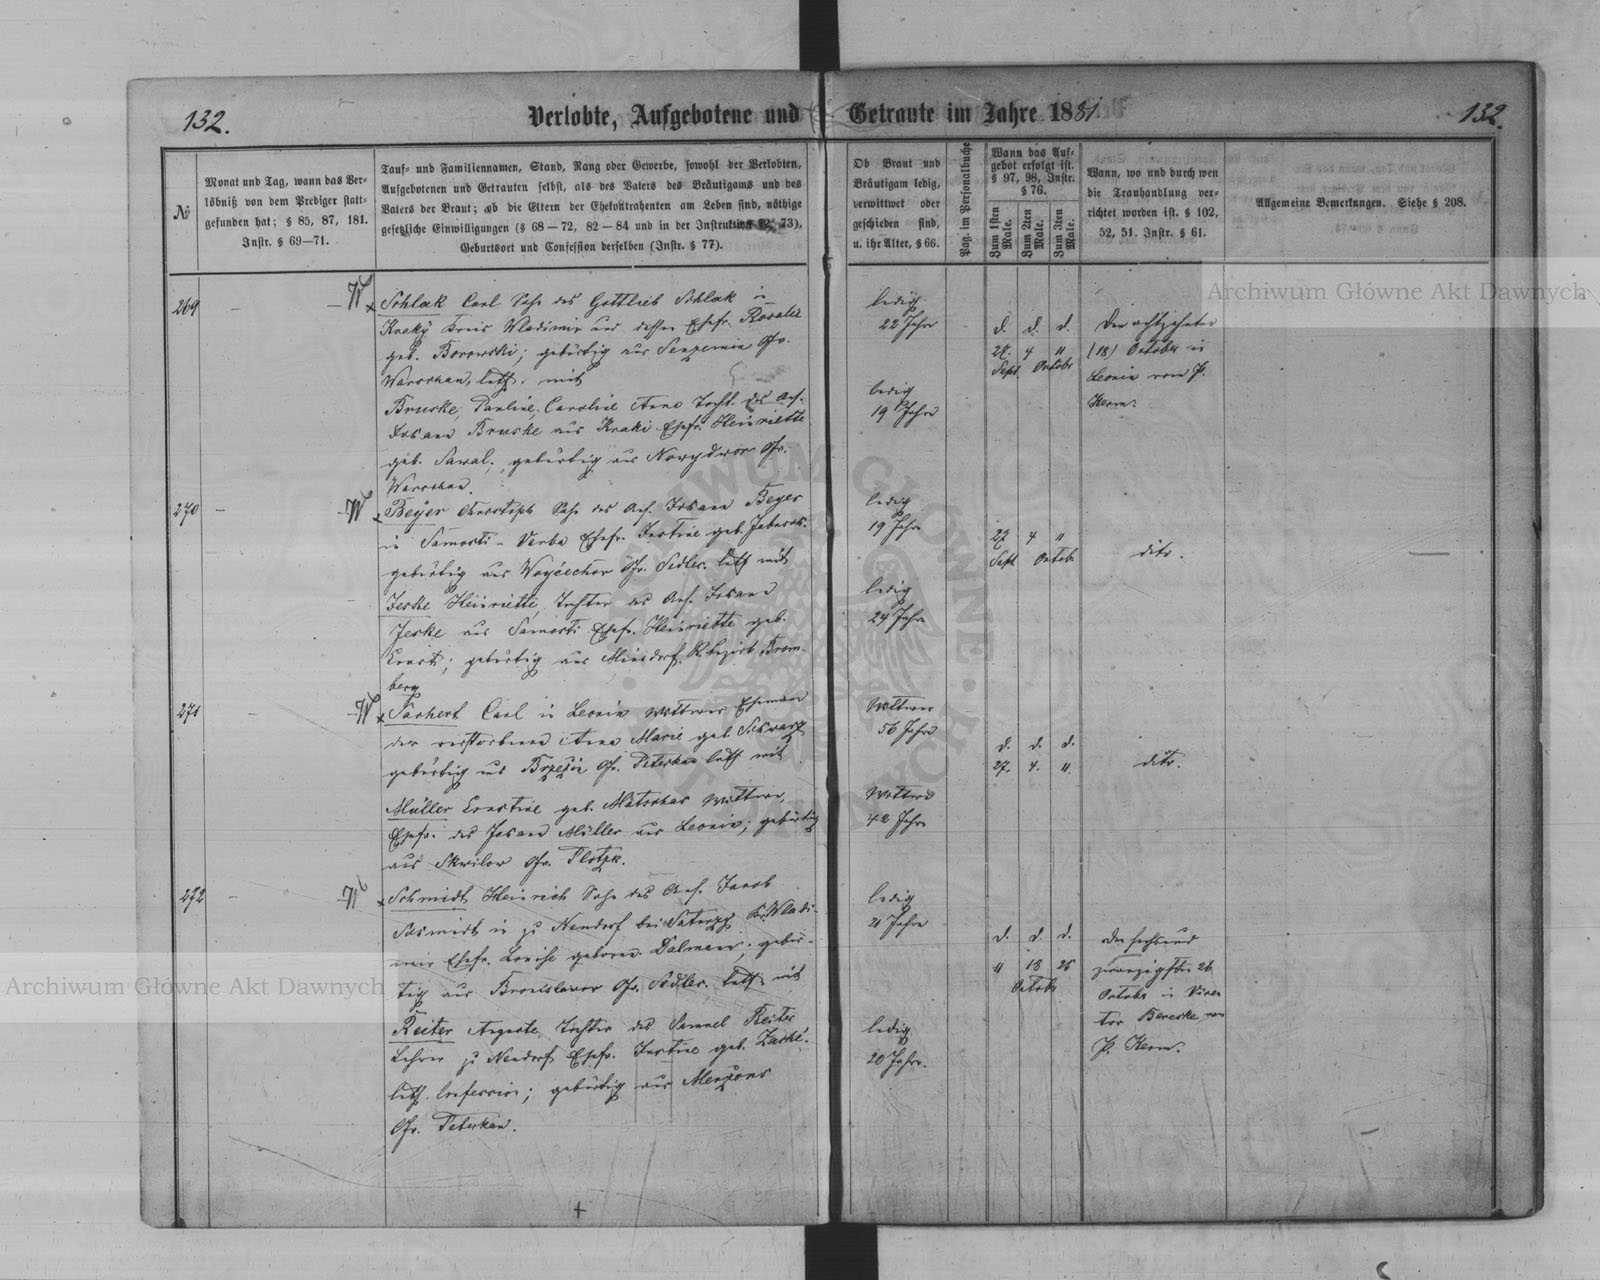 132.
Verlobte, Aufgebotene und
Getraute im Jahre 1881
132.
№
Monat und Tag, wann das Ver-
löbniß von dem Prediger statt-
gefunden hat; § 85, 87, 181.
Instr. § 69—71.
Tauf- und Familiennamen, Stand, Rang oder Gewerbe, sowohl der Verlobten,
Aufgebotenen und Getrauten selbst, als des Vaters des Bräutigams und des
Vaters der Braut; ob die Eltern der Ehekontrahenten am Leben sind, nöthige
gesetzliche Einwilligungen (§ 68—72, 82—84 und in der Instruktion 73),
Geburtsort und Confession derselben (Instr. § 77).
Ob Braut und
Bräutigam ledig,
verwittwet oder
geschieden sind,
u. ihr Alter, § 66.
Pag. im Personalbuche
Wann das Auf-
gebot erfolgt ist.
§ 97, 98, Instr.
§ 76.
Zum 1sten Male.
Zum 2ten Male.
Zum 3ten Male.
Wann, wo und durch wen
die Trauhandlung ver-
richtet worden ist. § 102,
52, 51. Instr. § 61.
Allgemeine Bemerkungen. Siehe § 208.
269
Schlak Carl Sohn des Gottlieb Schlak in
Kraky Kreis Wladimir und dessen Ehefr. Rosalie
geb. Borowski; gebürtig aus Gv.
Warschau, luth. mit
Bruske, Pauline, Caroline Anna Tocht. des Anf.
Johann Bruske aus Kraki Ehefr. Henriette
geb. Sawal, gebürtig aus Nowydwor Gv.
Warschau.
ledig
22 Jahr
ledig
19 Jahre
d. d. d.
27. 4 11
Sept. Octobr
Den achtzehnten
(18) October in
Leonin vom P.
Kerm.
270
Beyer Christoph Sohn des Anf. Johann Beyer
in Samosti-Verba Ehefr. Justine geb.
gebürtig aus Woyciechow Gv. Sedlec. luth. mit
Jeske Heinriette, Tochter des Anf. Johann
Jeske aus Samosti Ehefr. Heinriette geb.
Ernst; gebürtig aus R. bezirk Brom-
berg
ledig
19 Jahre
ledig
24 Jahre
27 4 11
Sept Octobr
dito.
271
Carl in Leonin Wittwer Ehemann
der verstorbenen Anna Marie geb. Schwarz
gebürtig aus Gv. Peterkau luth. mit
Müller Ernstine geb. Wittwe,
Ehefr. des Johann Müller aus Leonin; gebürtig
aus Skwilow Gv. Plotzk.
Wittwer
56 Jahre
Wittwe
42 Jahre
d. d. d.
27. 4. 11.
dito.
272
Schmidt Heinrich Sohn des Anf. Jacob
Schmidt in zu Neudorf bei Kr. Wladi-
mir Ehefr. Louise geboren Dalmann; gebür-
tig aus Bronislawow Gv. Sedlec. luth. mit
Reiter Auguste, Tochter des Samuel Reiter
Lehrer zu Neudorf Ehefr. Justine geb.
luth. Confession; gebürtig aus
Gv. Peterkau.
ledig
21 Jahre
ledig
20 Jahre.
d. d. d.
11 18 25
Octobr
den sechsund
zwanzigsten 26
October in
vom
P. Kerm.
Archiwum Główne Akt Dawnych
Archiwum Główne Akt Dawnych